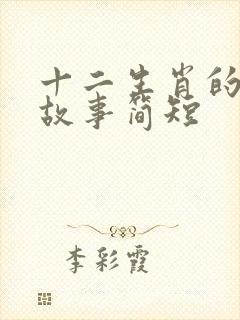 十二生肖的
故事简短
李彩霞